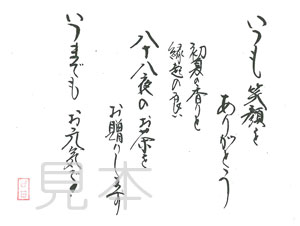 いつも笑顔を
ありがとう
初夏の香りと
縁起の良い
八十八夜のお茶を
お贈りします
いつまでも お元気で。
見本